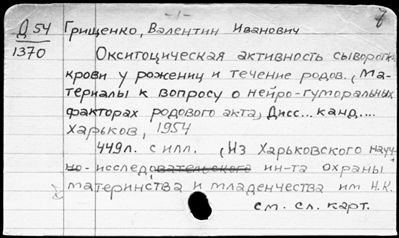 Д 54 Грищенко, Валентин Иванович
1370
Окситоцическая активность сыворотк
крови у рожениц и течение родов. (Ма-
териалы к вопросу о нейро-гуморальных
факторах родового акта) Дисс... канд....
Харьков, 1954
449л. с илл. (Из Харьковского науч
но-исследовательского ин-та охраны
материнства и младенчества им Н.К.
см. сл. карт.